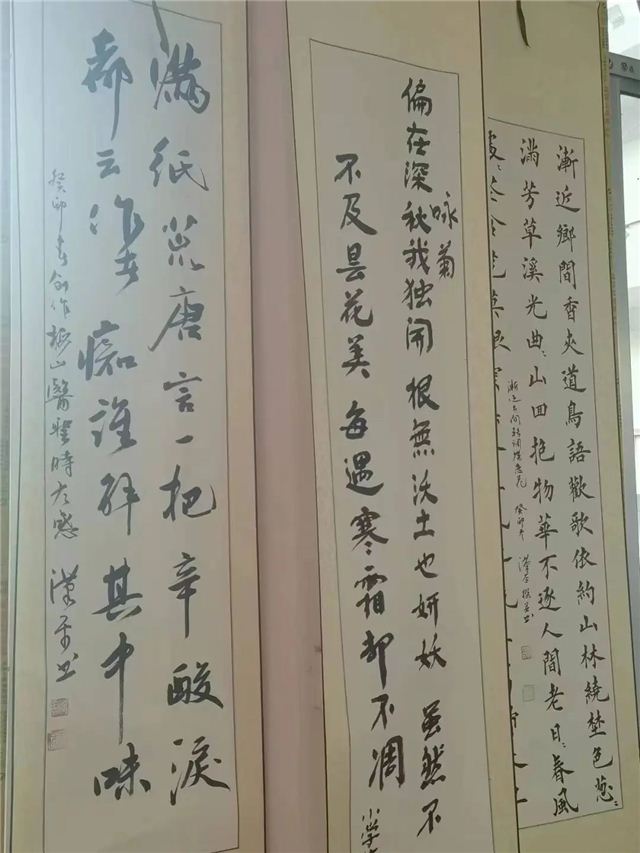 漸近鄉間香夾道鳥語歡歌依約山林繞埜色葱々
滿芳草溪光曲々山回抱物華不逐人間老日々春風
癸卯冬
詠菊
偏在深秋我独開根無沃土也妍妖虽然不
不及曇花美每遇寒霜却不凋
小学
滿紙荒唐言一把辛酸淚
都云作者痴誰解其中味
癸卯春創作山醫聖時有感漢平书